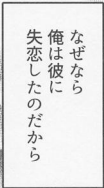 なぜなら
俺は彼に
失恋したのだから